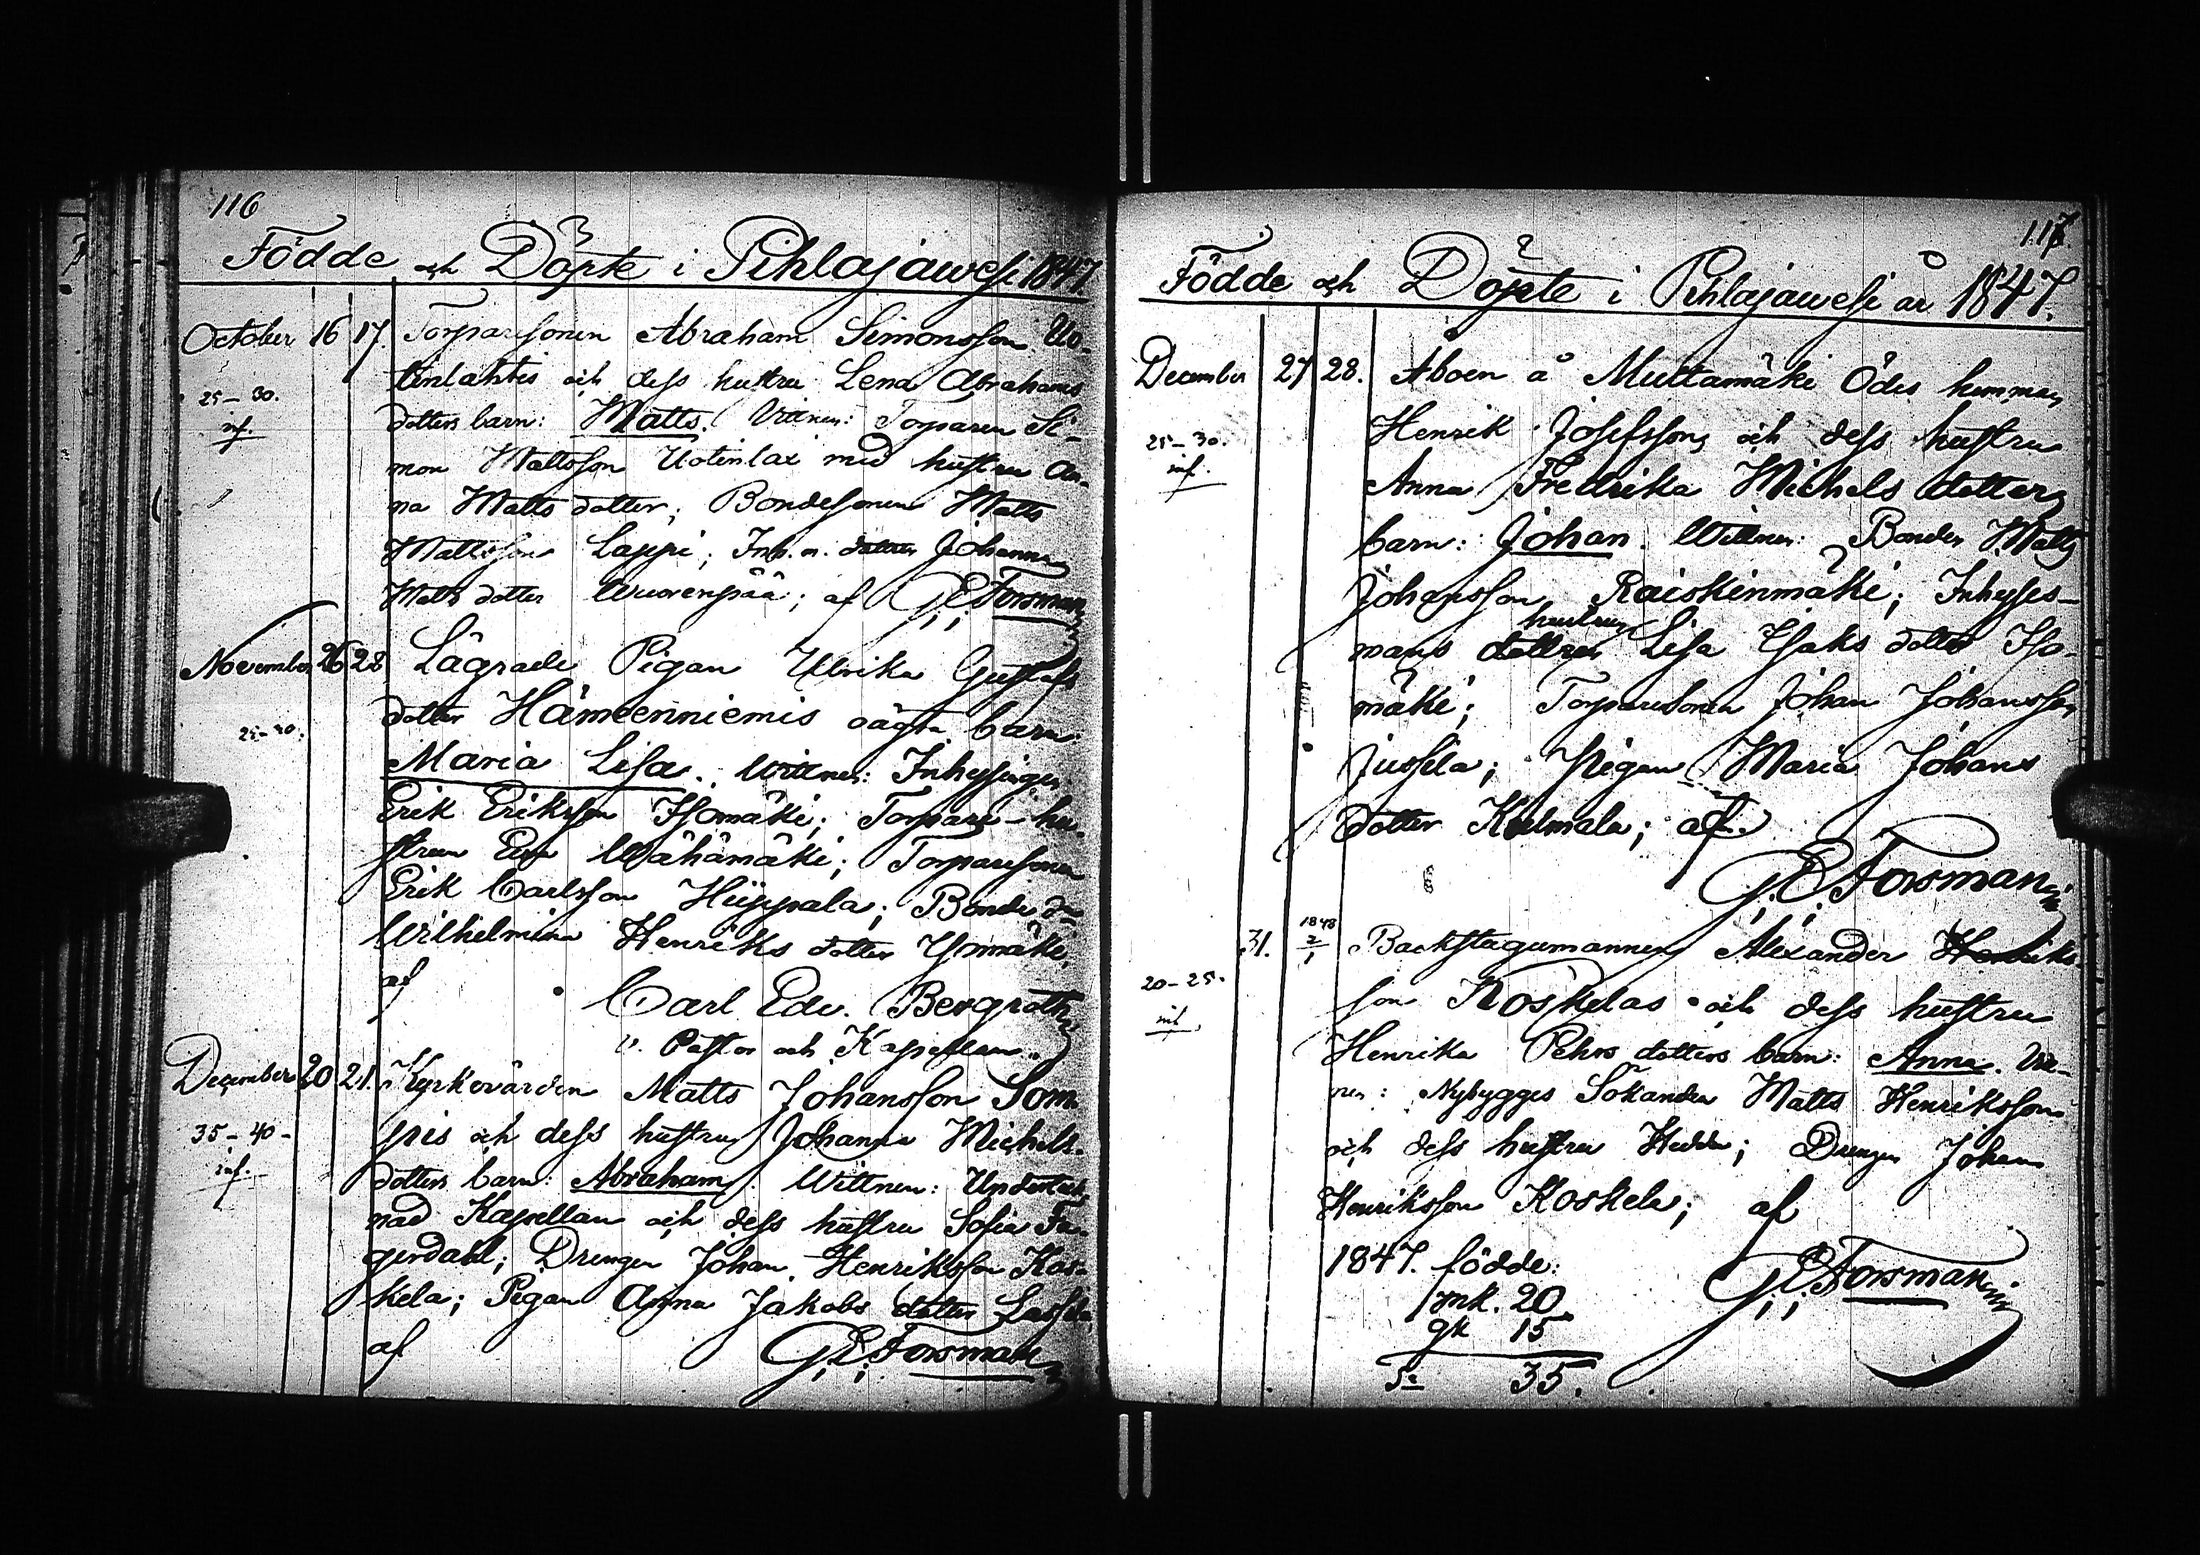 116
Födde och Döpte i Pihlajawesi 1847.
October 16 17. Torparesonen Abraham Simonsson Uo-
tinlahtis och dess hustru Lena Abrahams
25-30. dotters barn: Matts. Vittnen: Torparen Si-
inf. mon Mattsson Uotinlax med hustru An-
na Matts dotter; Bondesonen Matts
Mattsson Lappi; Inh. m. dotter Johanna
Matts dotter Wuorenpää; af G. E. Forsman
November 26 28 Lägrade Pigan Ulrika Gustafs
dotter Hämeenniemis oägta barn
25-30. Maria Lisa. Wittnen: Inhysingen
Erik Eriksson Isomäki; Torpare-hu-
strun Eva Wähämäki; Torparesonen
Erik Carlsson Hiippala; Bonde d:r
Wilhelmina Henriks dotter Isomäki,
af
Carl Edv. Bergroth
v. Pastor och Kapellan.
December 20 21. Kyrkovärden Matts Johansson Som-
35-40- pis och dess hustru Johanna Michels-
inf. dotters barn: Abraham. Wittnen:
nad Kapellan och dess hustru Sofia Fa-
gerdahl; Drengen Johan Henriksson Kos-
kela; Pigan Anna Jakobs dotter
af G. E. Forsman
117
Födde och Döpte i Pihlajawesi år 1847.
December 27 28. Åboen å Muttamäki Ödes hemman
Henrik Josefsson och dess hustru
25-30. inf. Anna Fredrika Michels dotters
barn: Johan. Wittnen: Bonden Matts
Johansson Raiskinmäki; Inhyses-
hustrun
mans dottren Lisa Isaks dotter Iso-
mäki; Torparesonen Johan Johansson
Jussila; Pigan Maria Johans
dotter Kulmala; af.
G. E. Forsman
31. 1848 2/1 Backstugumannen Alexander Henriks-
20-25. son Koskelas och dess hustru
inf. Henrika Pehrs dotters barn: Anna. Vitt-
nen: Nybygges Sökanden Matts Henriksson
och dess hustru Hedda; Drengen Johan
Henriksson Koskela; af
1847. födde: G. E. Forsman
mk. 20
qk 15
S:a 35.